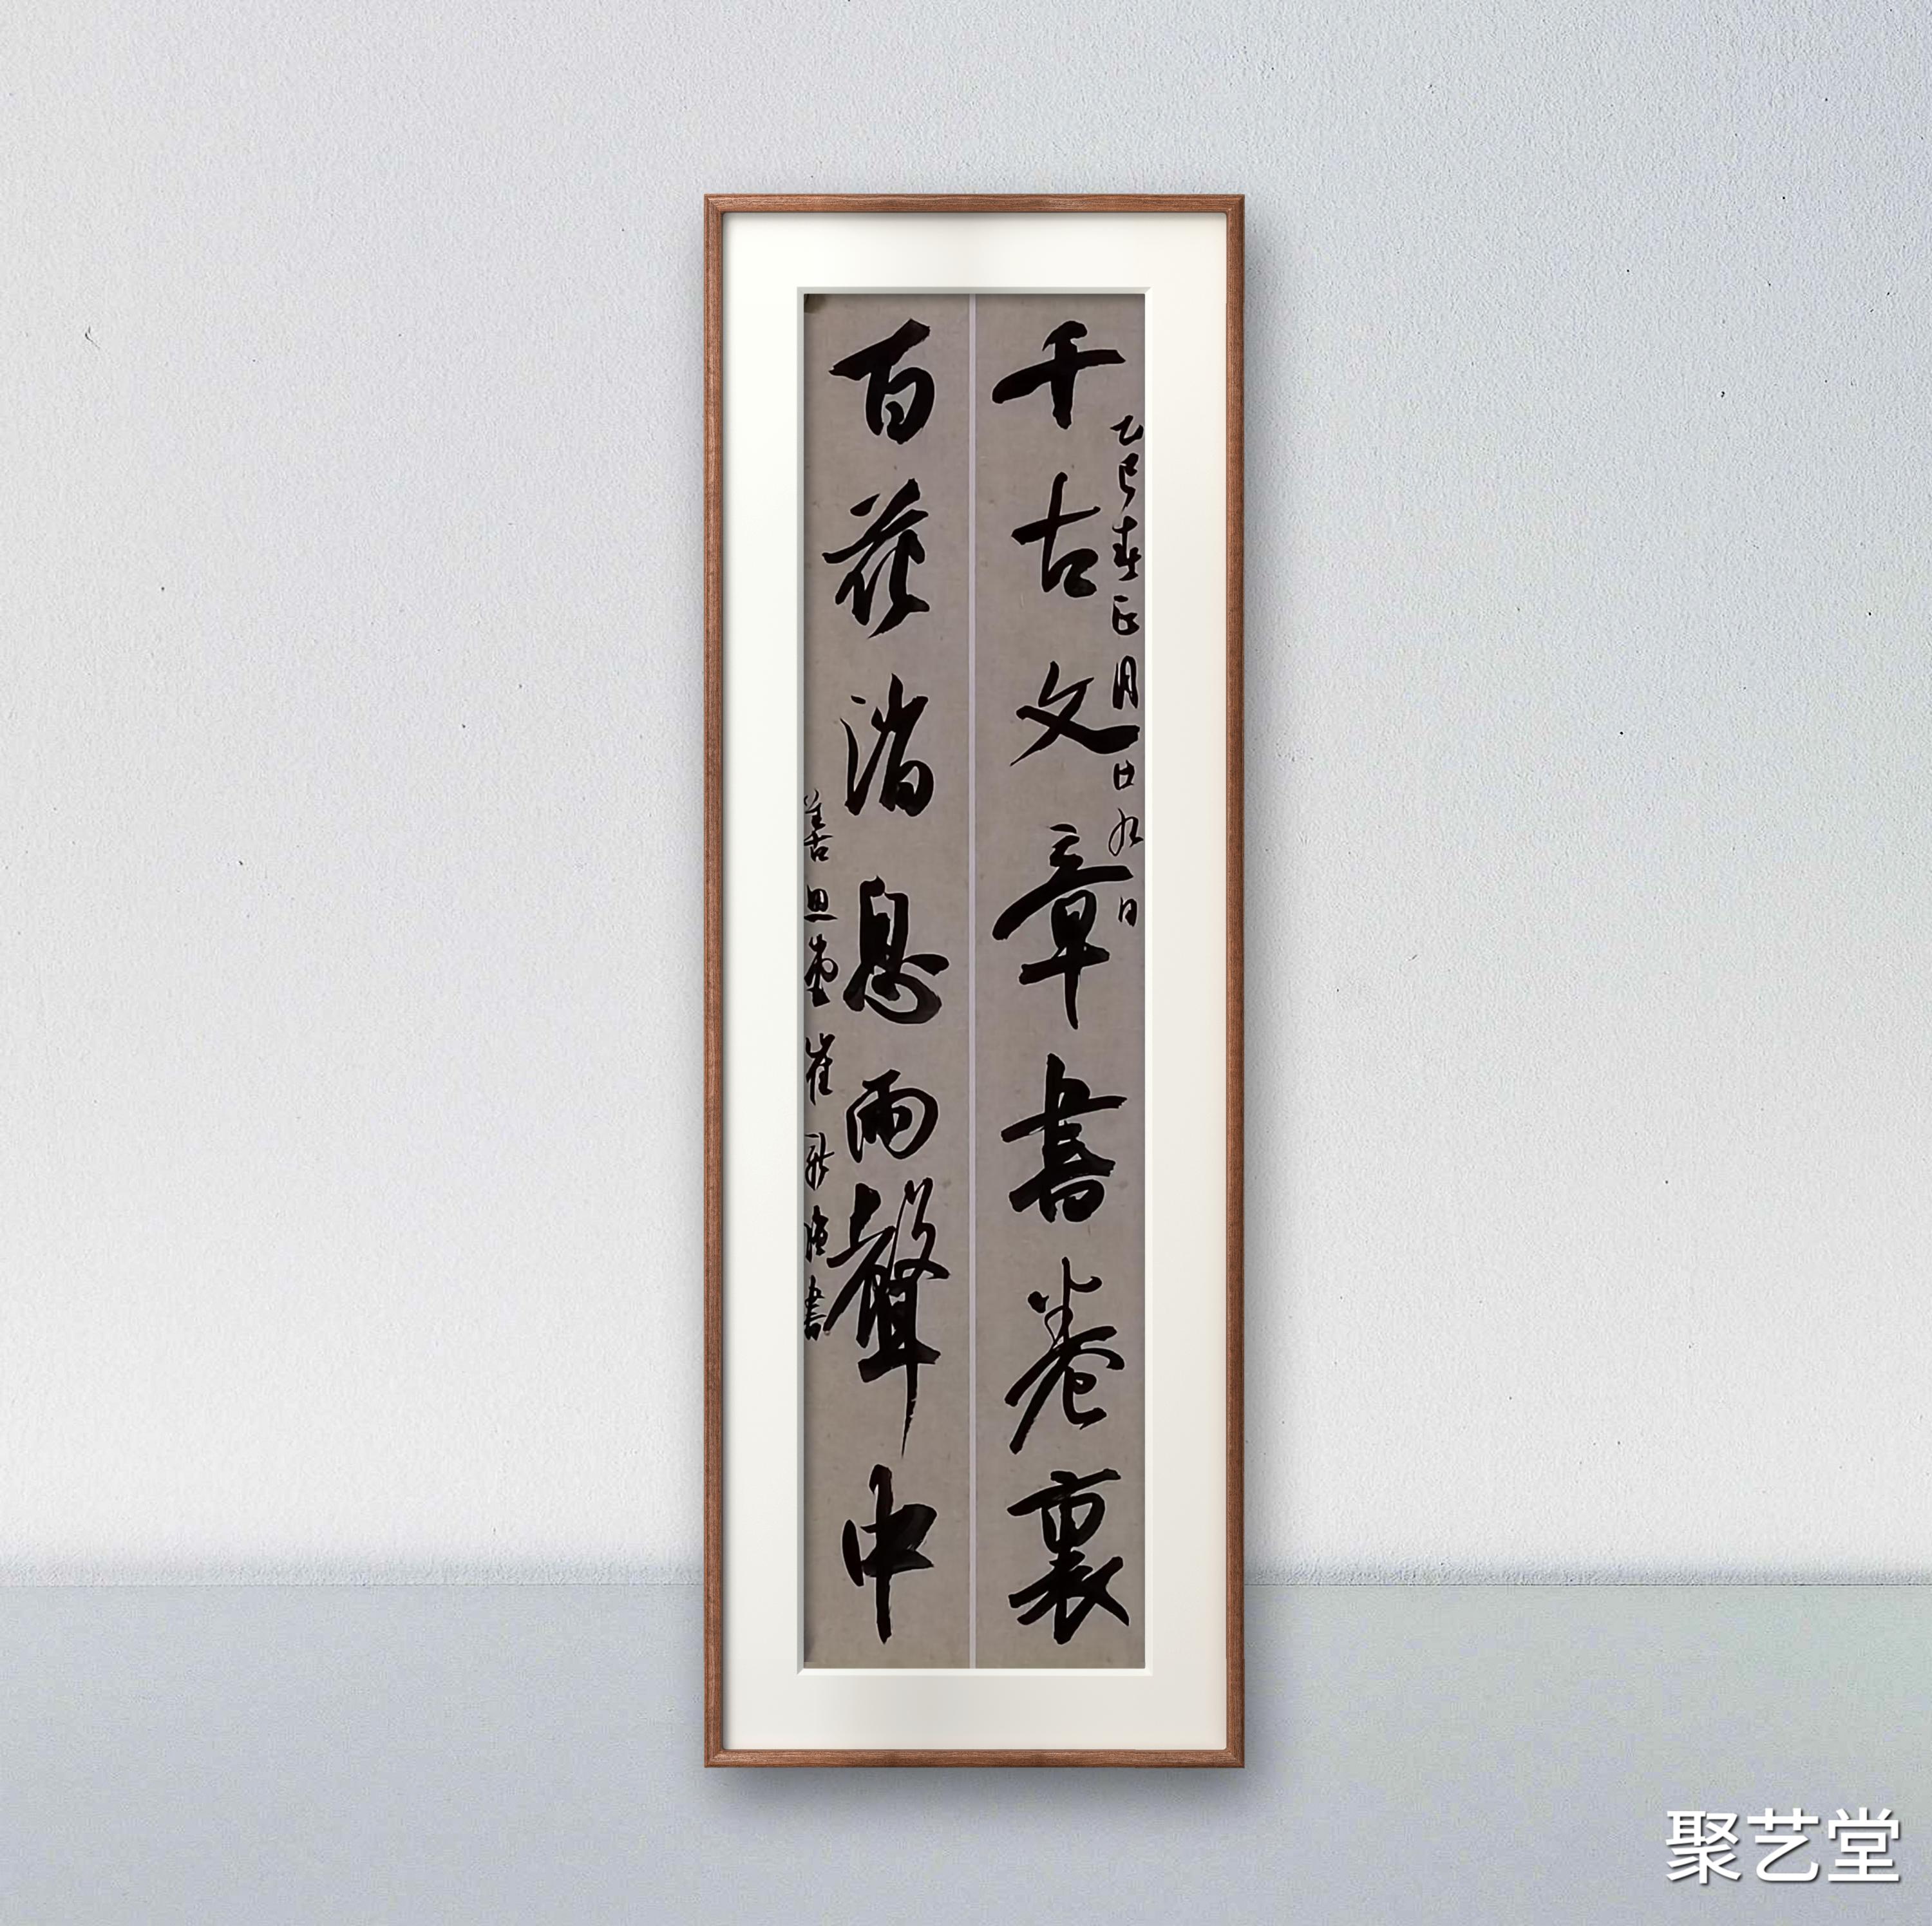 千古文章書卷裏
乙巳春正月廿九日
百花消息雨聲中
善思堂崔
書
聚艺堂